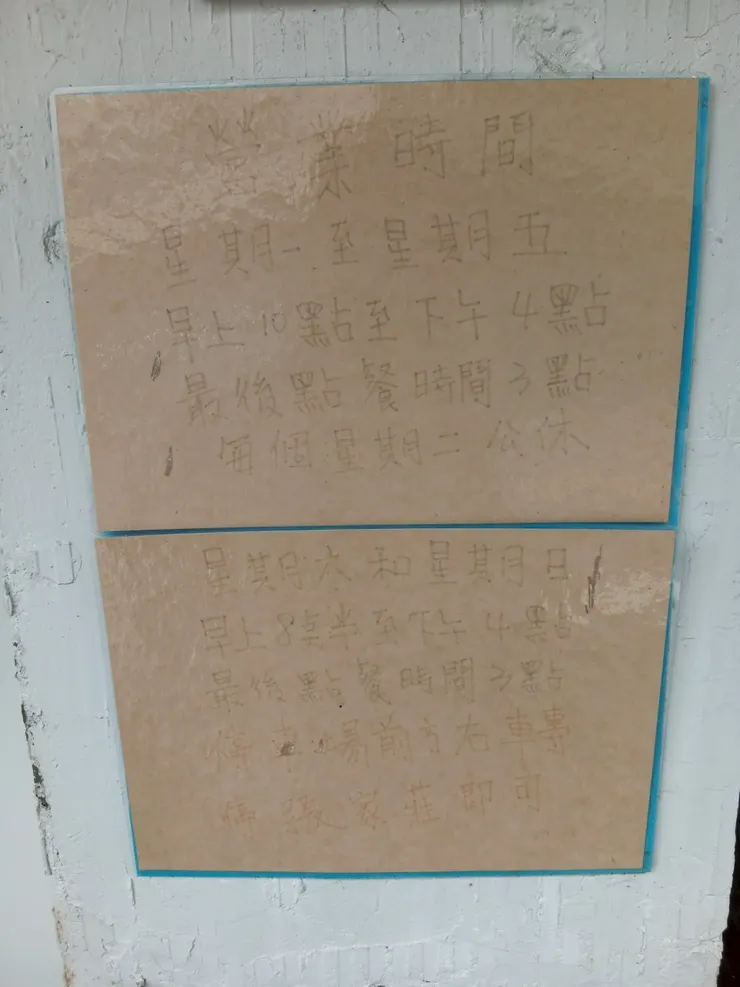 營業時間
星期一至星期五
早上10點至下午4點
最後點餐時間3點
每個星期二公休
星期六和星期日
早上8點半至下午4點
最後點餐時間3點
停車場前方右轉
停張家莊即可